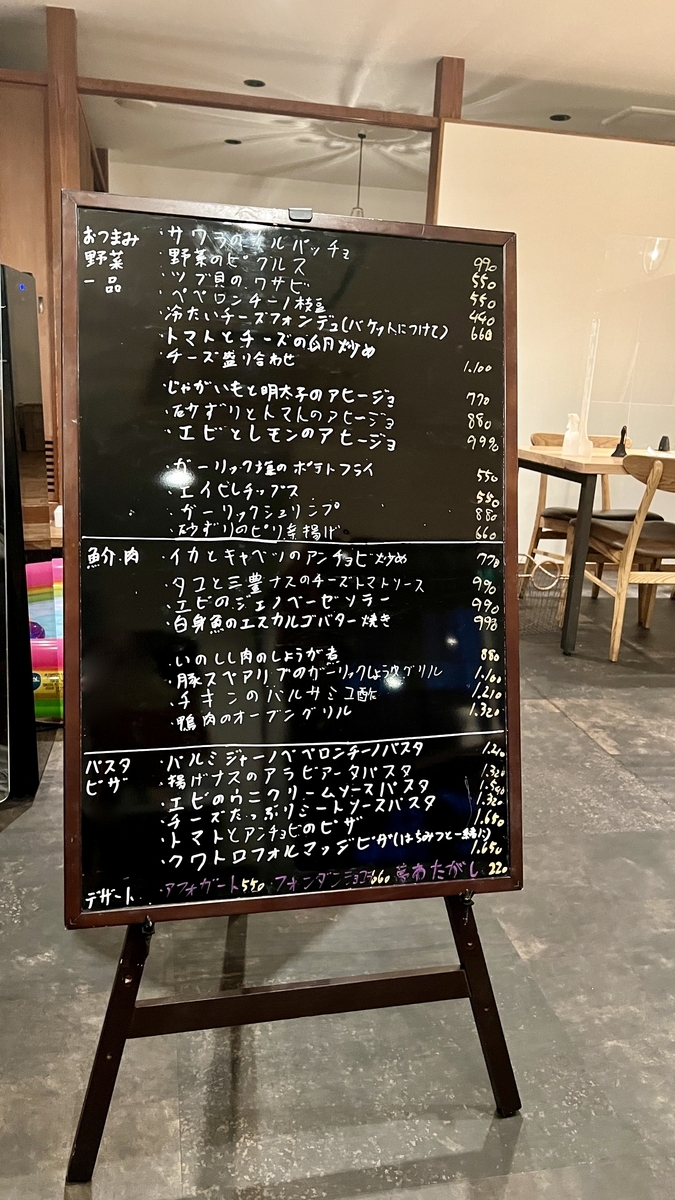 おつまみ ・サワラのカルパッチョ 990
野菜 ・野菜のピクルス 550
一品 ・ツブ貝のワサビ 550
・ペペロンチーノ枝豆 440
・冷たいチーズフォンデュ(バケットにつけて) 660
・トマトとチーズの卵炒め
・チーズ盛り合わせ 1.100
・じゃがいもと明太子のアヒージョ 770
・砂ずりとトマトのアヒージョ 880
・エビとレモンのアヒージョ 990
・ガーリック塩のポテトフライ 550
・エイヒレチップス 550
・ガーリックシュリンプ 880
・砂ずりのピリ辛揚げ 660
魚介.肉 ・イカとキャベツのアンチョビ炒め 770
・タコと三豊ナスのチーズトマトソース 990
・エビのジェノベーゼソテー 990
・白身魚のエスカルゴバター焼き 990
・いのしし肉のしょうが煮 880
・豚スペアリブのガーリックしょうゆグリル 1.100
・チキンのバルサミコ酢 1.210
・鴨肉のオーブングリル 1.320
パスタ ・パルミジャーノペペロンチーノパスタ 1.210
ピザ ・揚げナスのアラビアータパスタ 1.320
・エビのウニクリームソースパスタ 1.540
・チーズたっぷりミートソースパスタ 1.320
・トマトとアンチョビのピザ 1.650
・クワトロフォルマッジピザ(はちみつと一緒に) 1.650
デザート ・アフォガート550 フォンダンショコラ660 たがし 220